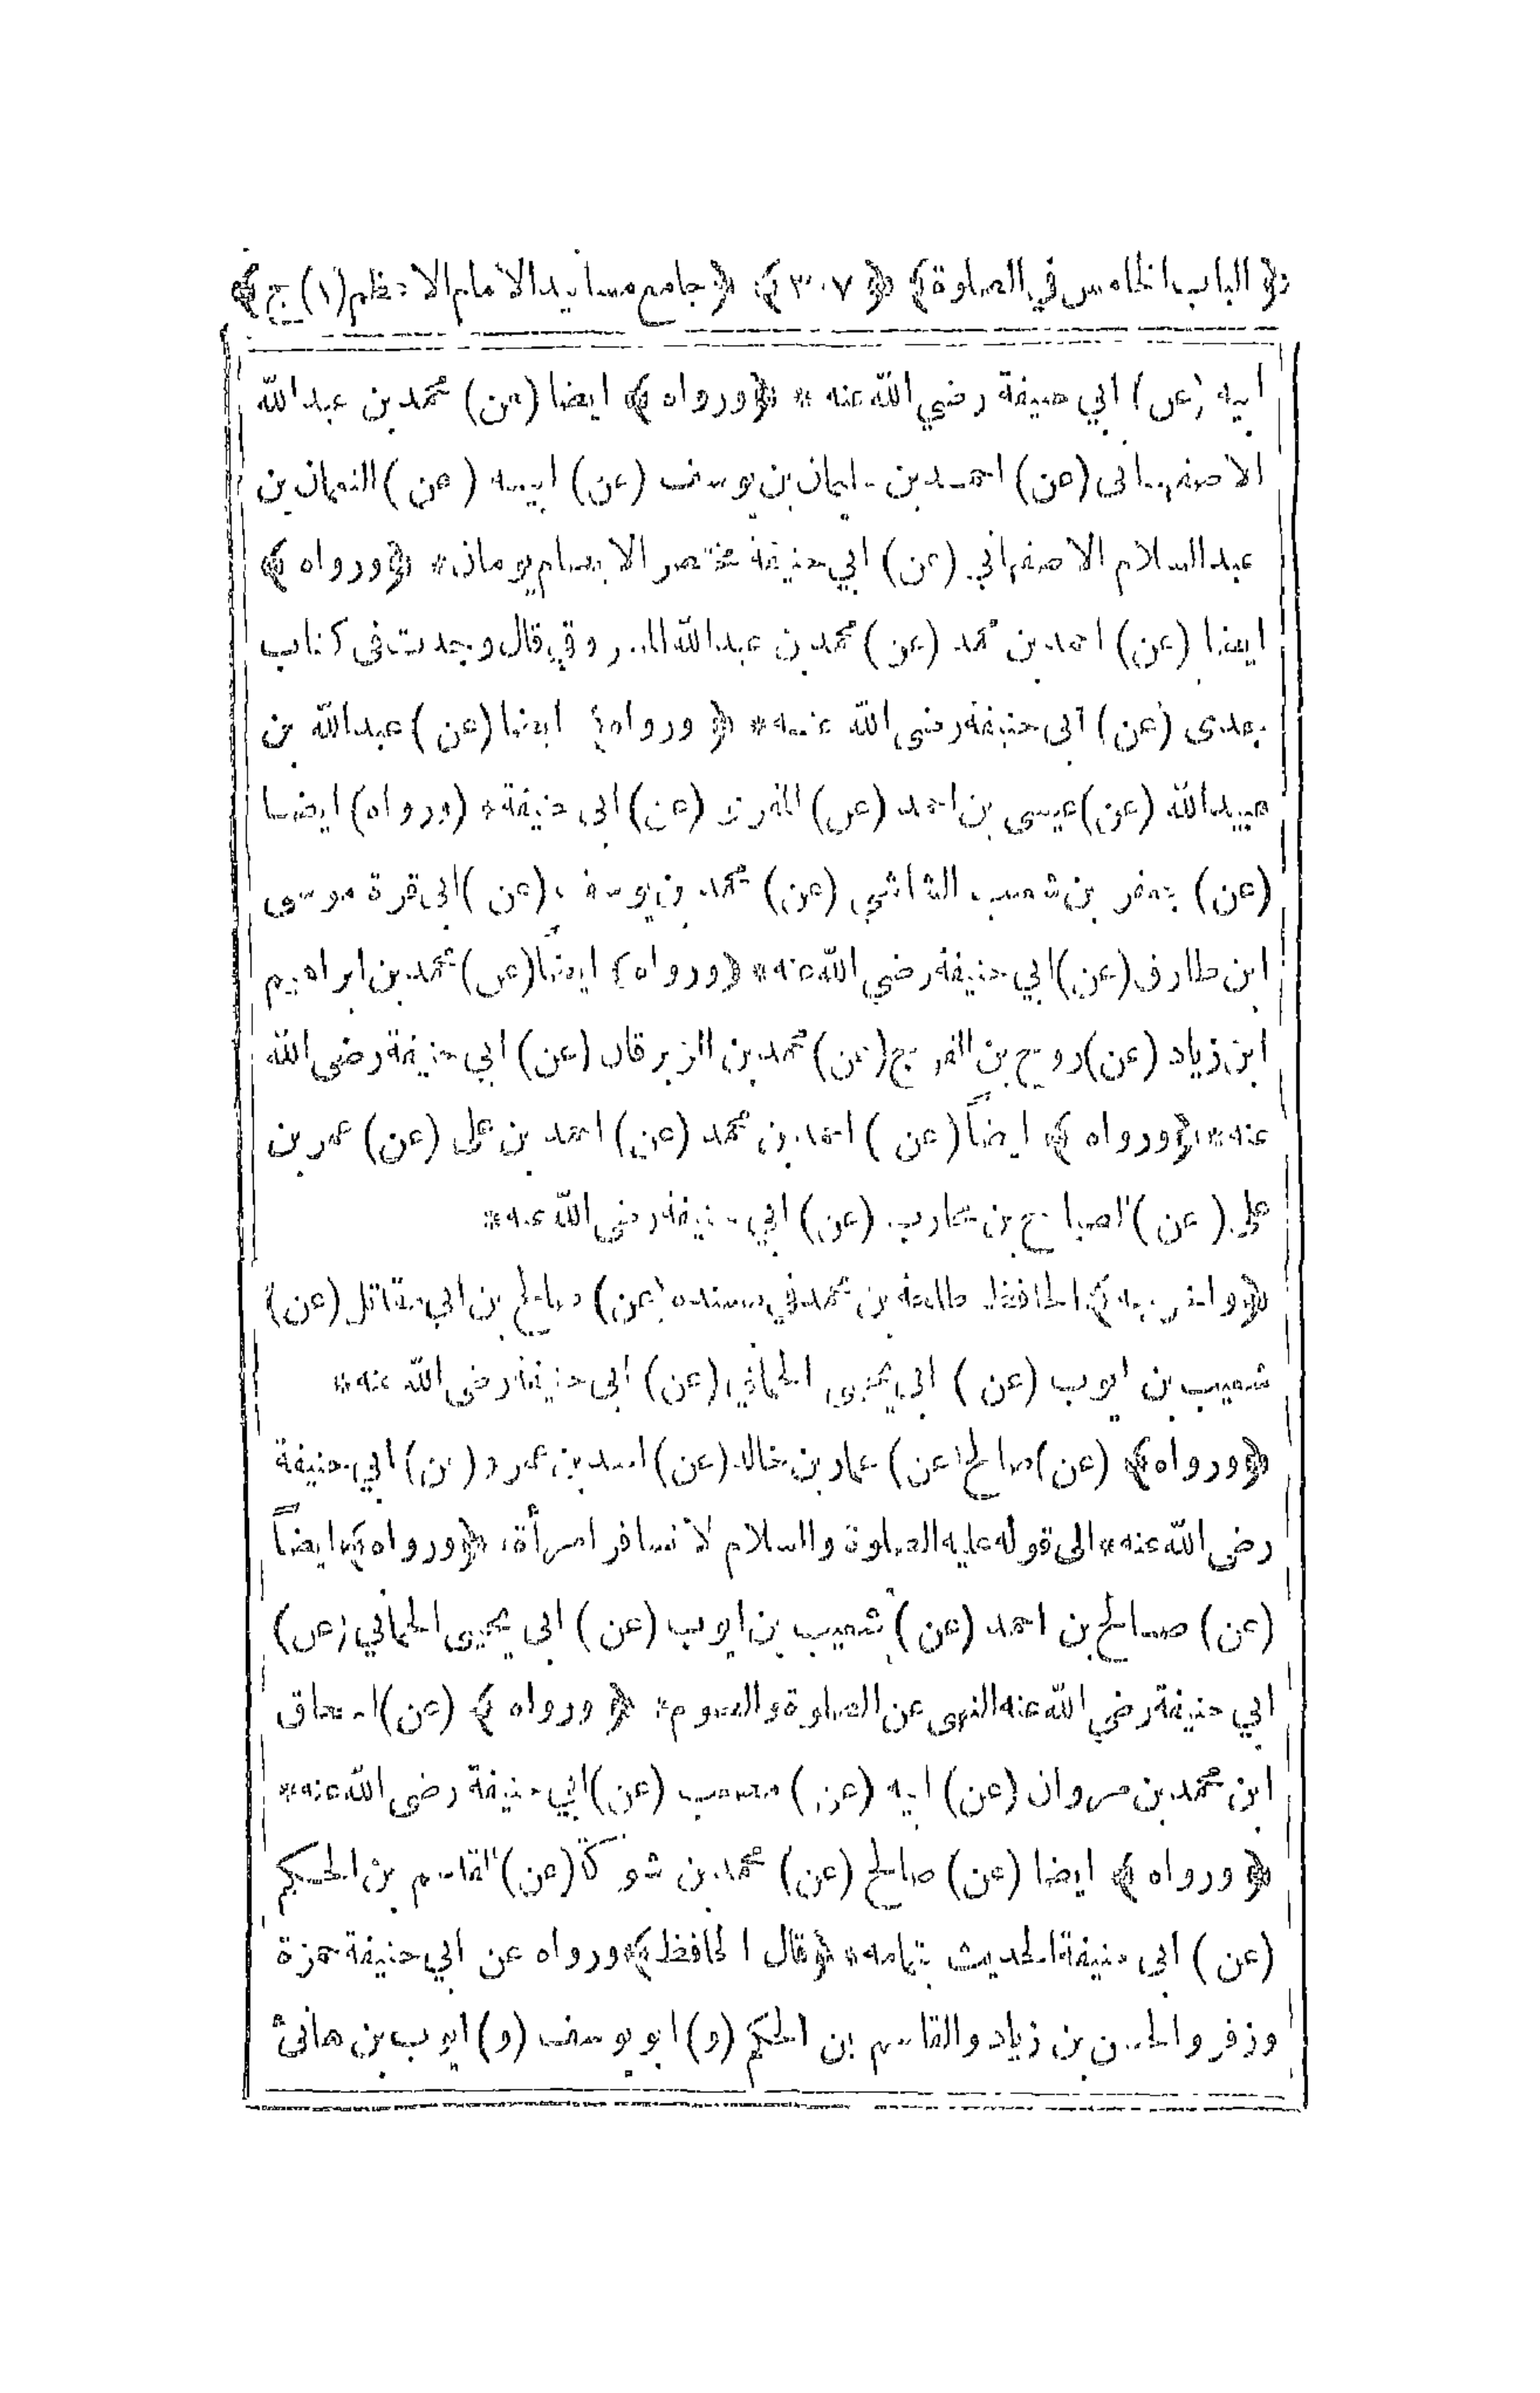 ﴿الباب الخامس في الصلوة﴾ ﴿٣٠٧﴾ ﴿جامع مسانيد الامام الاعظم (١) ج﴾
ابيه (عن) ابي حنيفة رضي الله عنه * ﴿ورواه﴾ ايضا (عن) محمد بن عبد الله
الاصفهانى (عن) احمد بن سليمان بن يوسف (عن) ابيه (عن) النعمان بن
عبد السلام الاصفهاني (عن) ابي حنيفة مختصر الا يصام يومان * ﴿ورواه﴾
ايضا (عن) احمد بن محمد (عن) محمد بن عبد الله المسروقي قال وجدت فى كتاب
جدى (عن) ابى حنيفة رضى الله عنه * ﴿ورواه﴾ ايضا (عن) عبد الله بن
عبيد الله (عن) عيسى بن احمد (عن) المقرئ (عن) ابى حنيفة * (ورواه) ايضا
(عن) جعفر بن شعيب الشاشي (عن) محمد بن يوسف (عن) ابى قرة موسى
ابن طارق (عن) ابي حنيفة رضي الله عنه * ﴿ورواه﴾ ايضاً (عن) محمد بن ابراهيم
ابن زياد (عن) روح بن الفرج (عن) محمد بن الزبرقان (عن) ابي حنيفة رضى الله
عنه * ﴿ورواه﴾ ايضاً (عن) احمد بن محمد (عن) احمد بن على (عن) عمر بن
على (عن) الصباح بن محارب (عن) ابي حنيفة رضى الله عنه *
﴿واخرجه﴾ الحافظ طلحة بن محمد في مسنده (عن) صالح بن ابي مقاتل (عن)
شعيب بن ايوب (عن) ابى يحيى الحماني (عن) ابى حنيفة رضى الله عنه *
﴿ورواه﴾ (عن) صالح (عن) عمار بن خالد (عن) اسد بن عمرو (عن) ابي حنيفة
رضى الله عنه * الى قوله عليه الصلوة والسلام لا تسافر امرأة * ﴿ورواه﴾ ايضاً
(عن) صالح بن احمد (عن) شعيب بن ايوب (عن) ابى يحيى الحماني (عن)
ابي حنيفة رضي الله عنه النهى عن الصلوة والصوم * ﴿ورواه﴾ (عن) اسحاق
ابن محمد بن مروان (عن) ابيه (عن) مصعب (عن) ابي حنيفة رضى الله عنه *
﴿ورواه﴾ ايضا (عن) صالح (عن) محمد بن شوكة (عن) القاسم بن الحكم
(عن) ابى حنيفة الحديث بتمامه * ﴿قال الحافظ﴾ ورواه عن ابي حنيفة حمزة
وزفر والحسن بن زياد والقاسم بن الحكم (و) ابو يوسف (و) ايوب بن هانئ